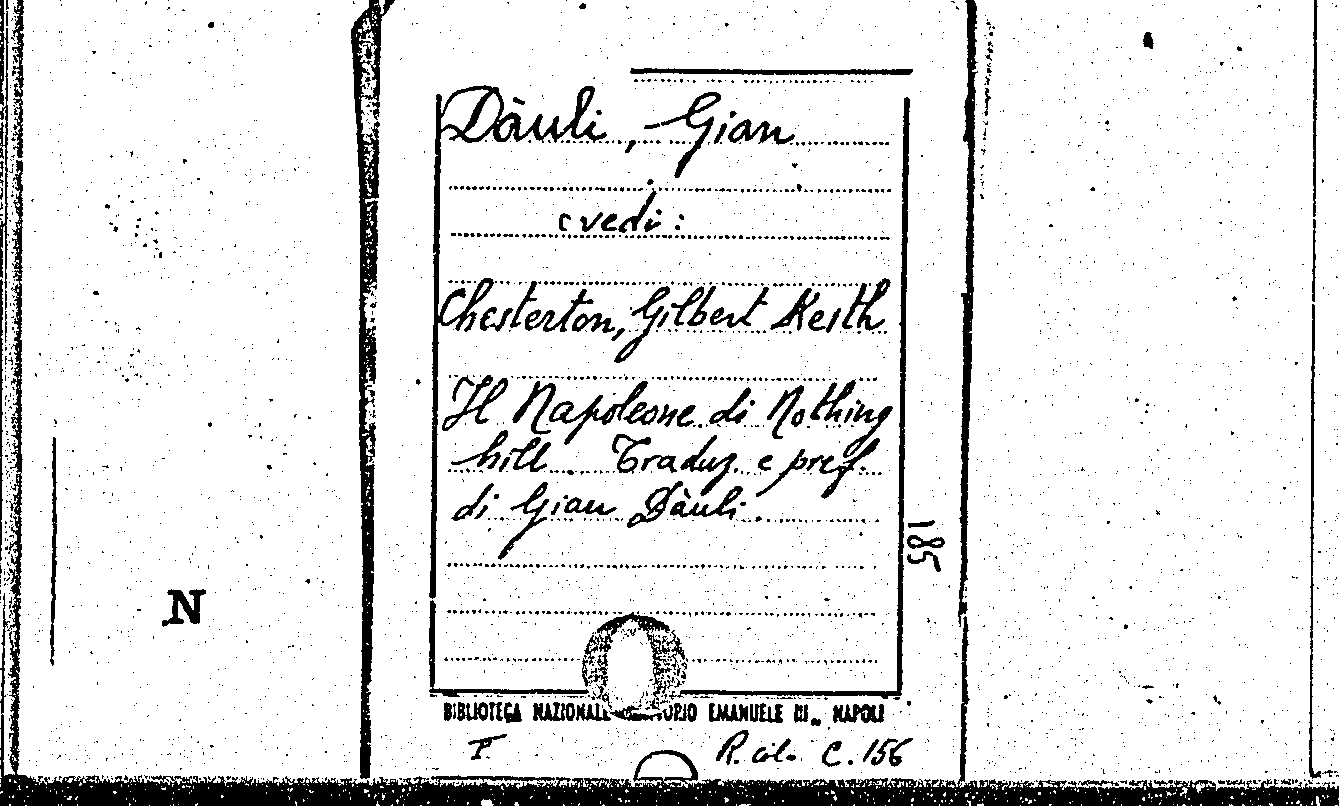 Dàuli, Gian
vedi:
Chesterton, Gilbert Keith
Il Napoleone di Nothing
hill. Traduz. e pref.
di Gian Dàuli.
185
N
BIBLIOTECA NAZIONALE EMANUELE III„ NAPOLI
F.
R. C. 156